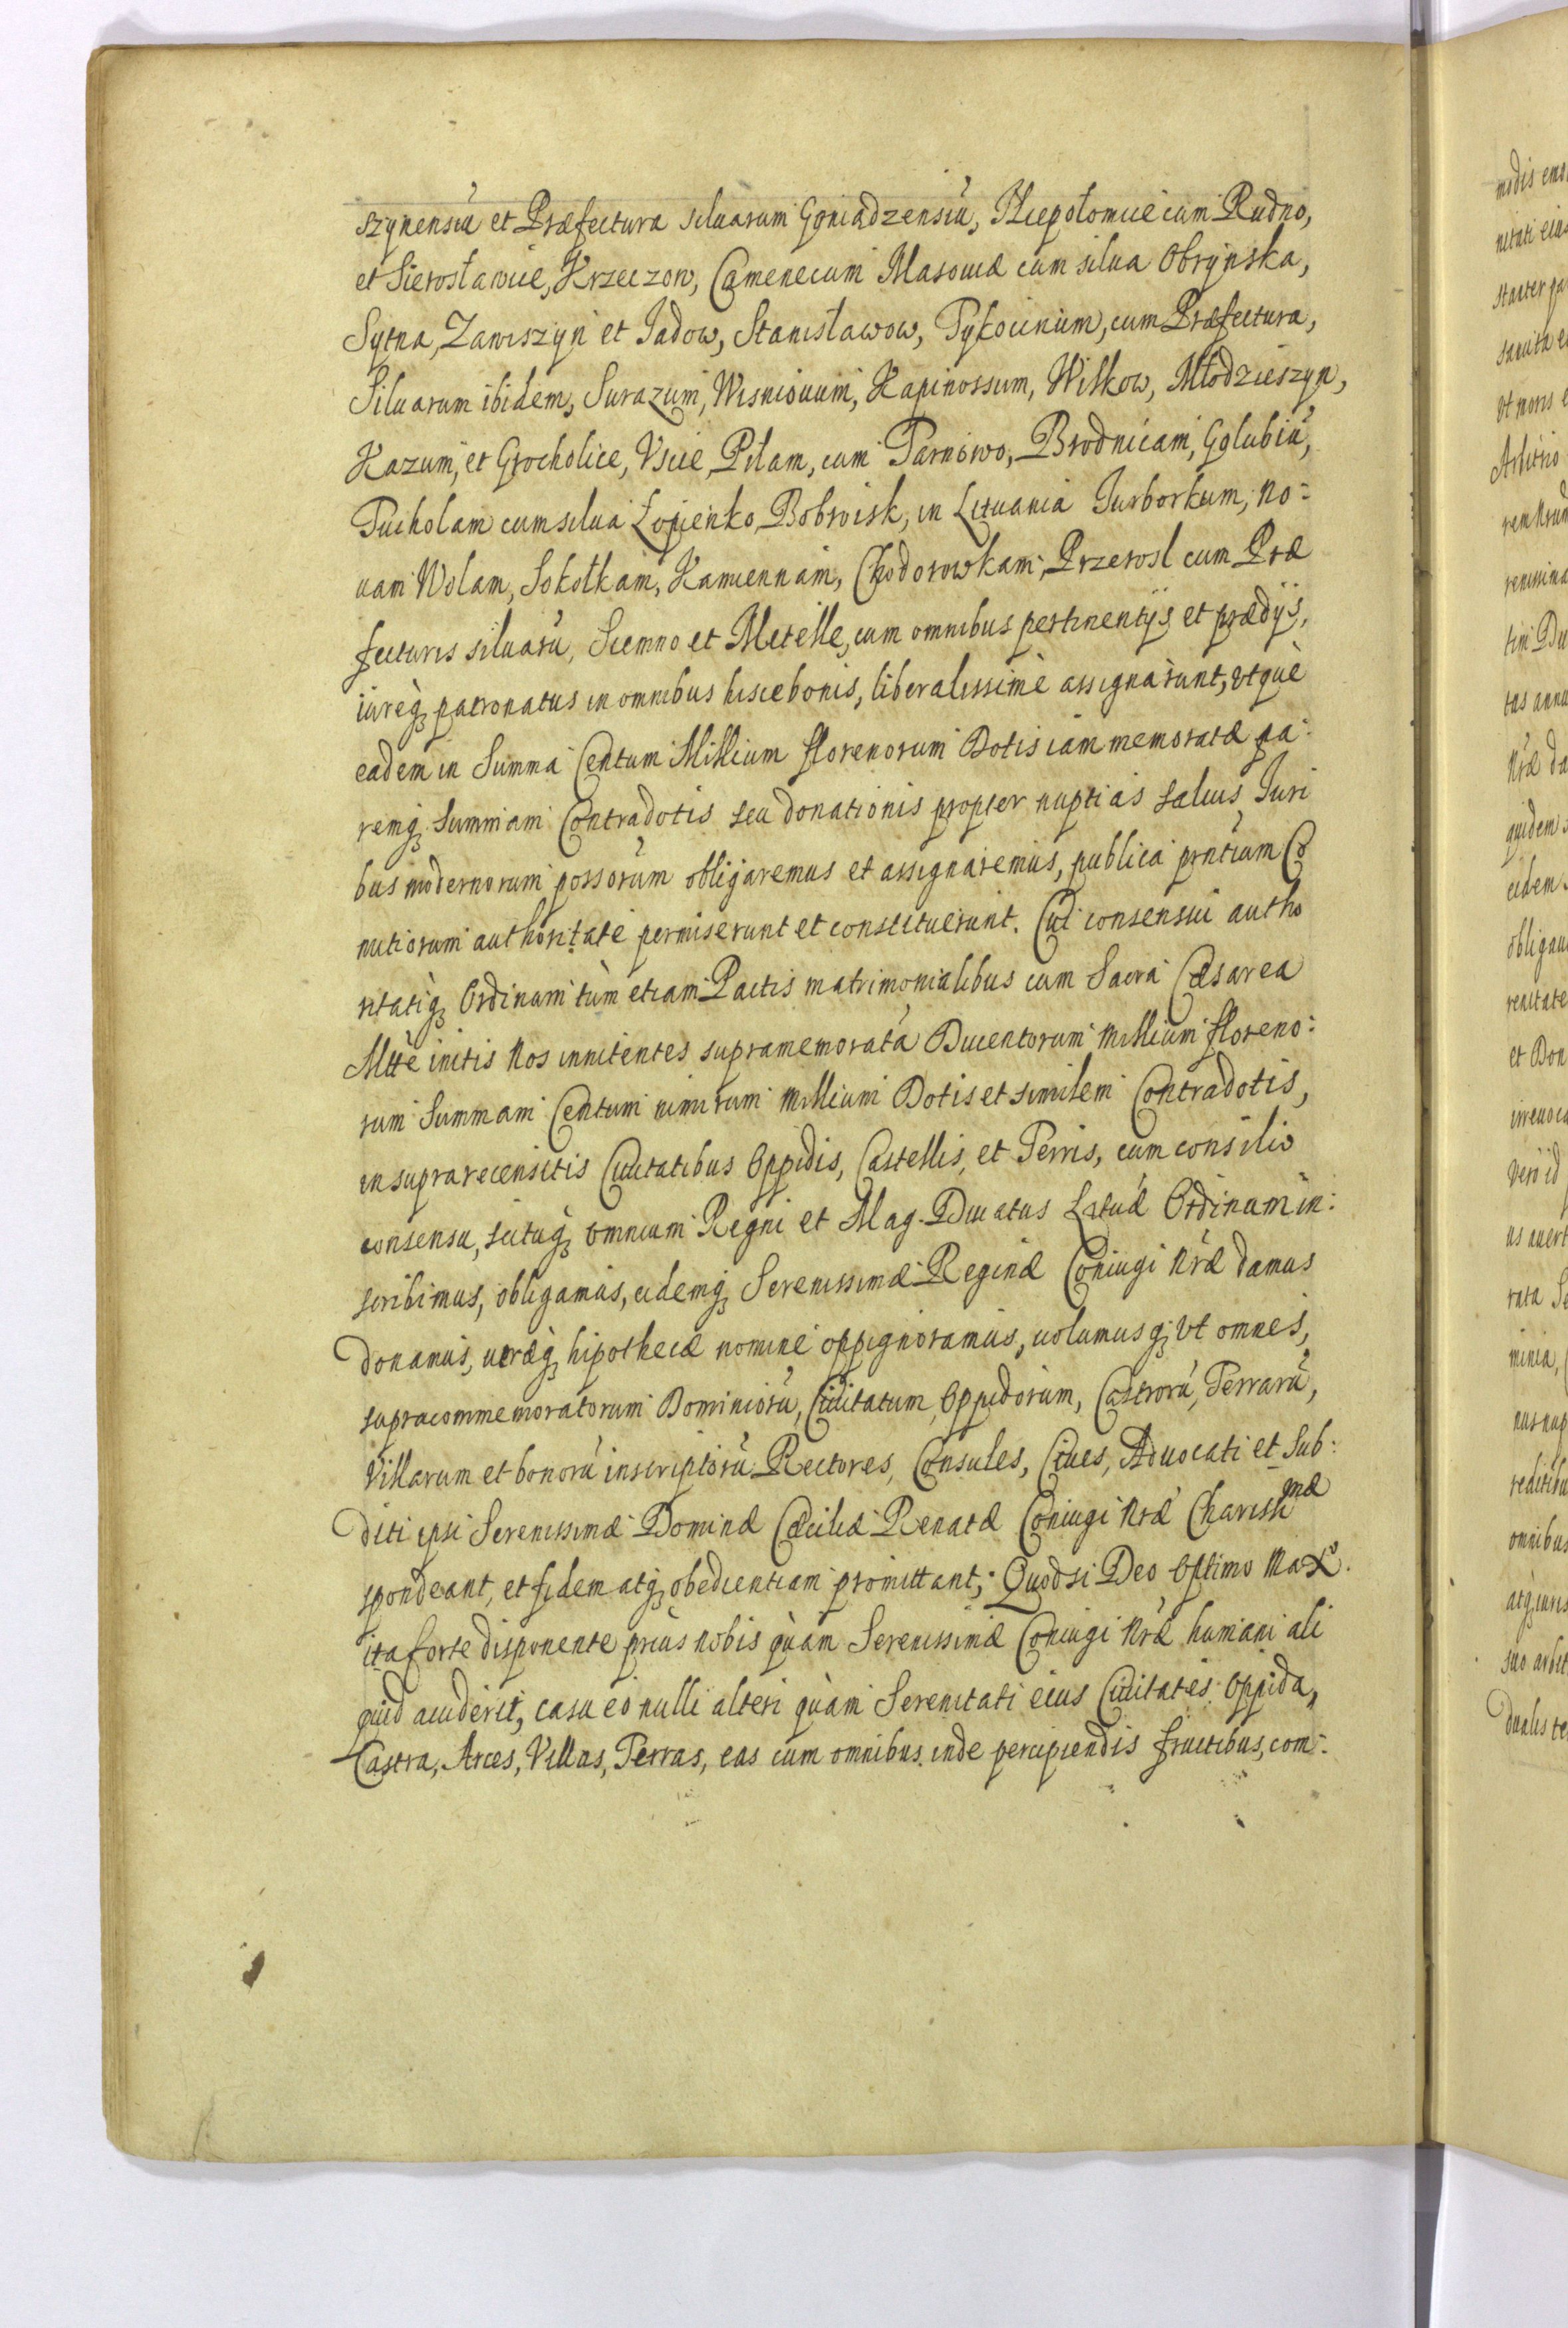 szynensiu᷃ et Præfectura siluarum Goniadzensiu᷃, Niepołomice cum Rudno,
et Sierosławice, Krzeczow, Camenecum Masouiæ cum silua Obrynska,
Sytna, Zawiszyn et Jadow, Stanisławow, Tykocinium, cum Præfectura,
Siluarum ibidem, Surazum, Wisniouum, Kapinossum, Wilkow, Młodzieszyn,
Kazum, et Grocholice, Vscie, Pilam, cum Tarnowo, Brodnicam, Golubiu᷃,
Tucholam cum silua Łopienko, Bobroisk, in Lituania Jurborkum, No:
uam Wolam, Sokołkam, Kamiennam, Chodorowkam, Przerosl cum Præ
fecturis siluaru᷃, Siemno et Metelle, cum omnibus pertinentijs et prædijs,
iureq3 patronatus in omnibus hisce bonis, liberalissimè assignarunt, vtquè
eadem in Summa Centum Millium florenorum Dotis iam memoratæ pa:
remq3 Summam Contradotis seu donationis propter nuptias saluis Juri
bus modernorum possorum obligaremus et assignaremus, publica pntium Co
mitiorum authoritate permiserunt et constituerunt. Cui consensui autho
ritatiq3 Ordinum tùm etiam Pactis matrimonialibus cum Sacra Cæsarea
Mtte initis Nos innitentes supramemorata Ducentorum Millium floreno:
rum Summam Centum nimirum Millium Dotis et similem Contradotis,
in suprarecensitis Ciuitatibus Oppidis, Castellis, et Terris, cum consilio
consensu, scituq3 omnium Regni et Mag. Ducatus Lituæ Ordinum in:
scribimus, obligamus, eidemq3 Serenissimæ Reginæ Coniugi Nræ damus
Donamus, veræq3 hipothecæ nomine oppignoramus, uolumusq3 vt omnes,
supracommemoratorum Dominioru᷃, Ciuitatum, Oppidorum, Castroru᷃, Terraru᷃,
Villarum et bonoru᷃ inscriptoru᷃ Rectores, Consules, Ciues, Aduocati et Sub:
diti ipsi Serenissimæ Dominæ Cæciliæ Renatæ Coniugi Nræ Charissimæ
spondeant, et fidem atq3 obedientiam promittant; Quod si Deo Optimo Maxo.
ita forte disponente priùs nobis quàm Serenissimæ Coniugi Nræ humani ali
quid acciderit, casu eo nulli alteri quàm Serenitati eius Ciuitates Oppida,
Castra, Arces, Villas, Terras, eas cum omnibus inde percipiendis fructibus, com: